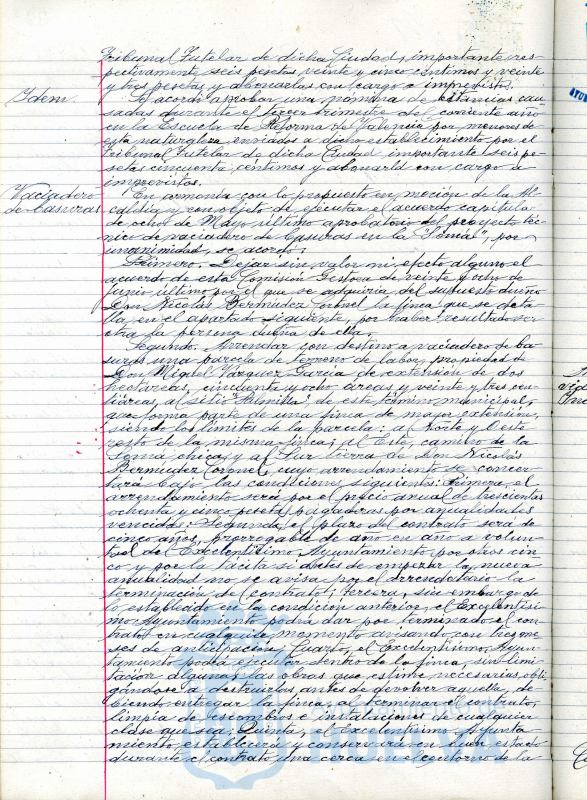 Tribunal Tutelar de dicha Ciudad, importante res-
pectivamente seis pesetas veinte y cinco centimos y veinte
y tres pesetas y abonarlas con cargo a imprevistos.
Idem. Se acordó aprobar una nómina de estancias cau-
sadas durante el tercer trimestre del corriente año
en la Escuela de Reforma de Palencia por menores de
esta naturaleza enviados a dicho establecimiento por el
Tribunal Tutelar de dicha Ciudad importante seis pe-
setas cincuenta centimos y abonarla con cargo a
imprevistos.
Vaciadero En armonía con lo propuesto en moción de la Al-
de basuras caldia y con objeto de ejecutar el acuerdo capitula
de ocho de Mayo último aprobatorio del proyecto téc-
nico de vaciadero de basuras en la "Loma", por
unanimidad, se acordó:
Primero. Dejar sin valor ni efecto alguno el
acuerdo de esta Comisión Gestora de veinte y ocho de
Junio último por el que se adquiria del supuesto dueño
Don Nicolás Bermúdez Coronel la finca que se deta-
lla en el apartado siguiente, por haber resultado ser
otra la persona dueña de ella.
Segundo. Arrendar con destino a vaciadero de ba-
suras una parcela de terreno de labor, propiedad de
Don Miguel Vázquez Garcia de extensión de dos
hectareas, cincuenta y ocho áreas y veinte y tres cen-
tiáreas, al sitio de este término municipal,
que forma parte de una finca de mayor extensión,
siendo los limites de la parcela: a Norte y Oeste
resto de la misma finca; al Este, camino de la
Loma chica, y al Sur tierra de Don Nicolás
Bermúdez Coronel, cuyo arrendamiento se concer-
tará bajo las condiciones siguientes: Primera, el
arrendamiento será por el precio anual de trescientas
ochenta y cinco pesetas pagaderas por anualidades
vencidas; Segunda, el plazo del contrato será de
cinco años, prorrogable de año en año a volun-
tad del Excelentísimo Ayuntamiento por otros cin-
co y por la tácita si antes de empezar la nueva
anualidad no se avisa por el arrendatario la
terminación del contrato; Tercera, sin embargo de
lo establecido en la condición anterior, el Excelentísi-
mo Ayuntamiento podrá dar por terminado el con-
trato en cualquier momento avisando con tres me-
ses de anticipación; Cuarta, el Excelentisimo Ayun-
tamiento podrá ejecutar dentro de la finca, sin limi-
tación alguna, las obras que estime necesarias, obli-
gándose a destruirlas antes de devolver aquella, de-
biendo entregar la finca, al terminar el contrato,
limpia de escombros e instalaciones de cualquier
clase que sea; Quinta, el excelentisimo Ayunta-
miento, establecerá y conservará en buen estado
durante el contrato una cerca en el contorno de la